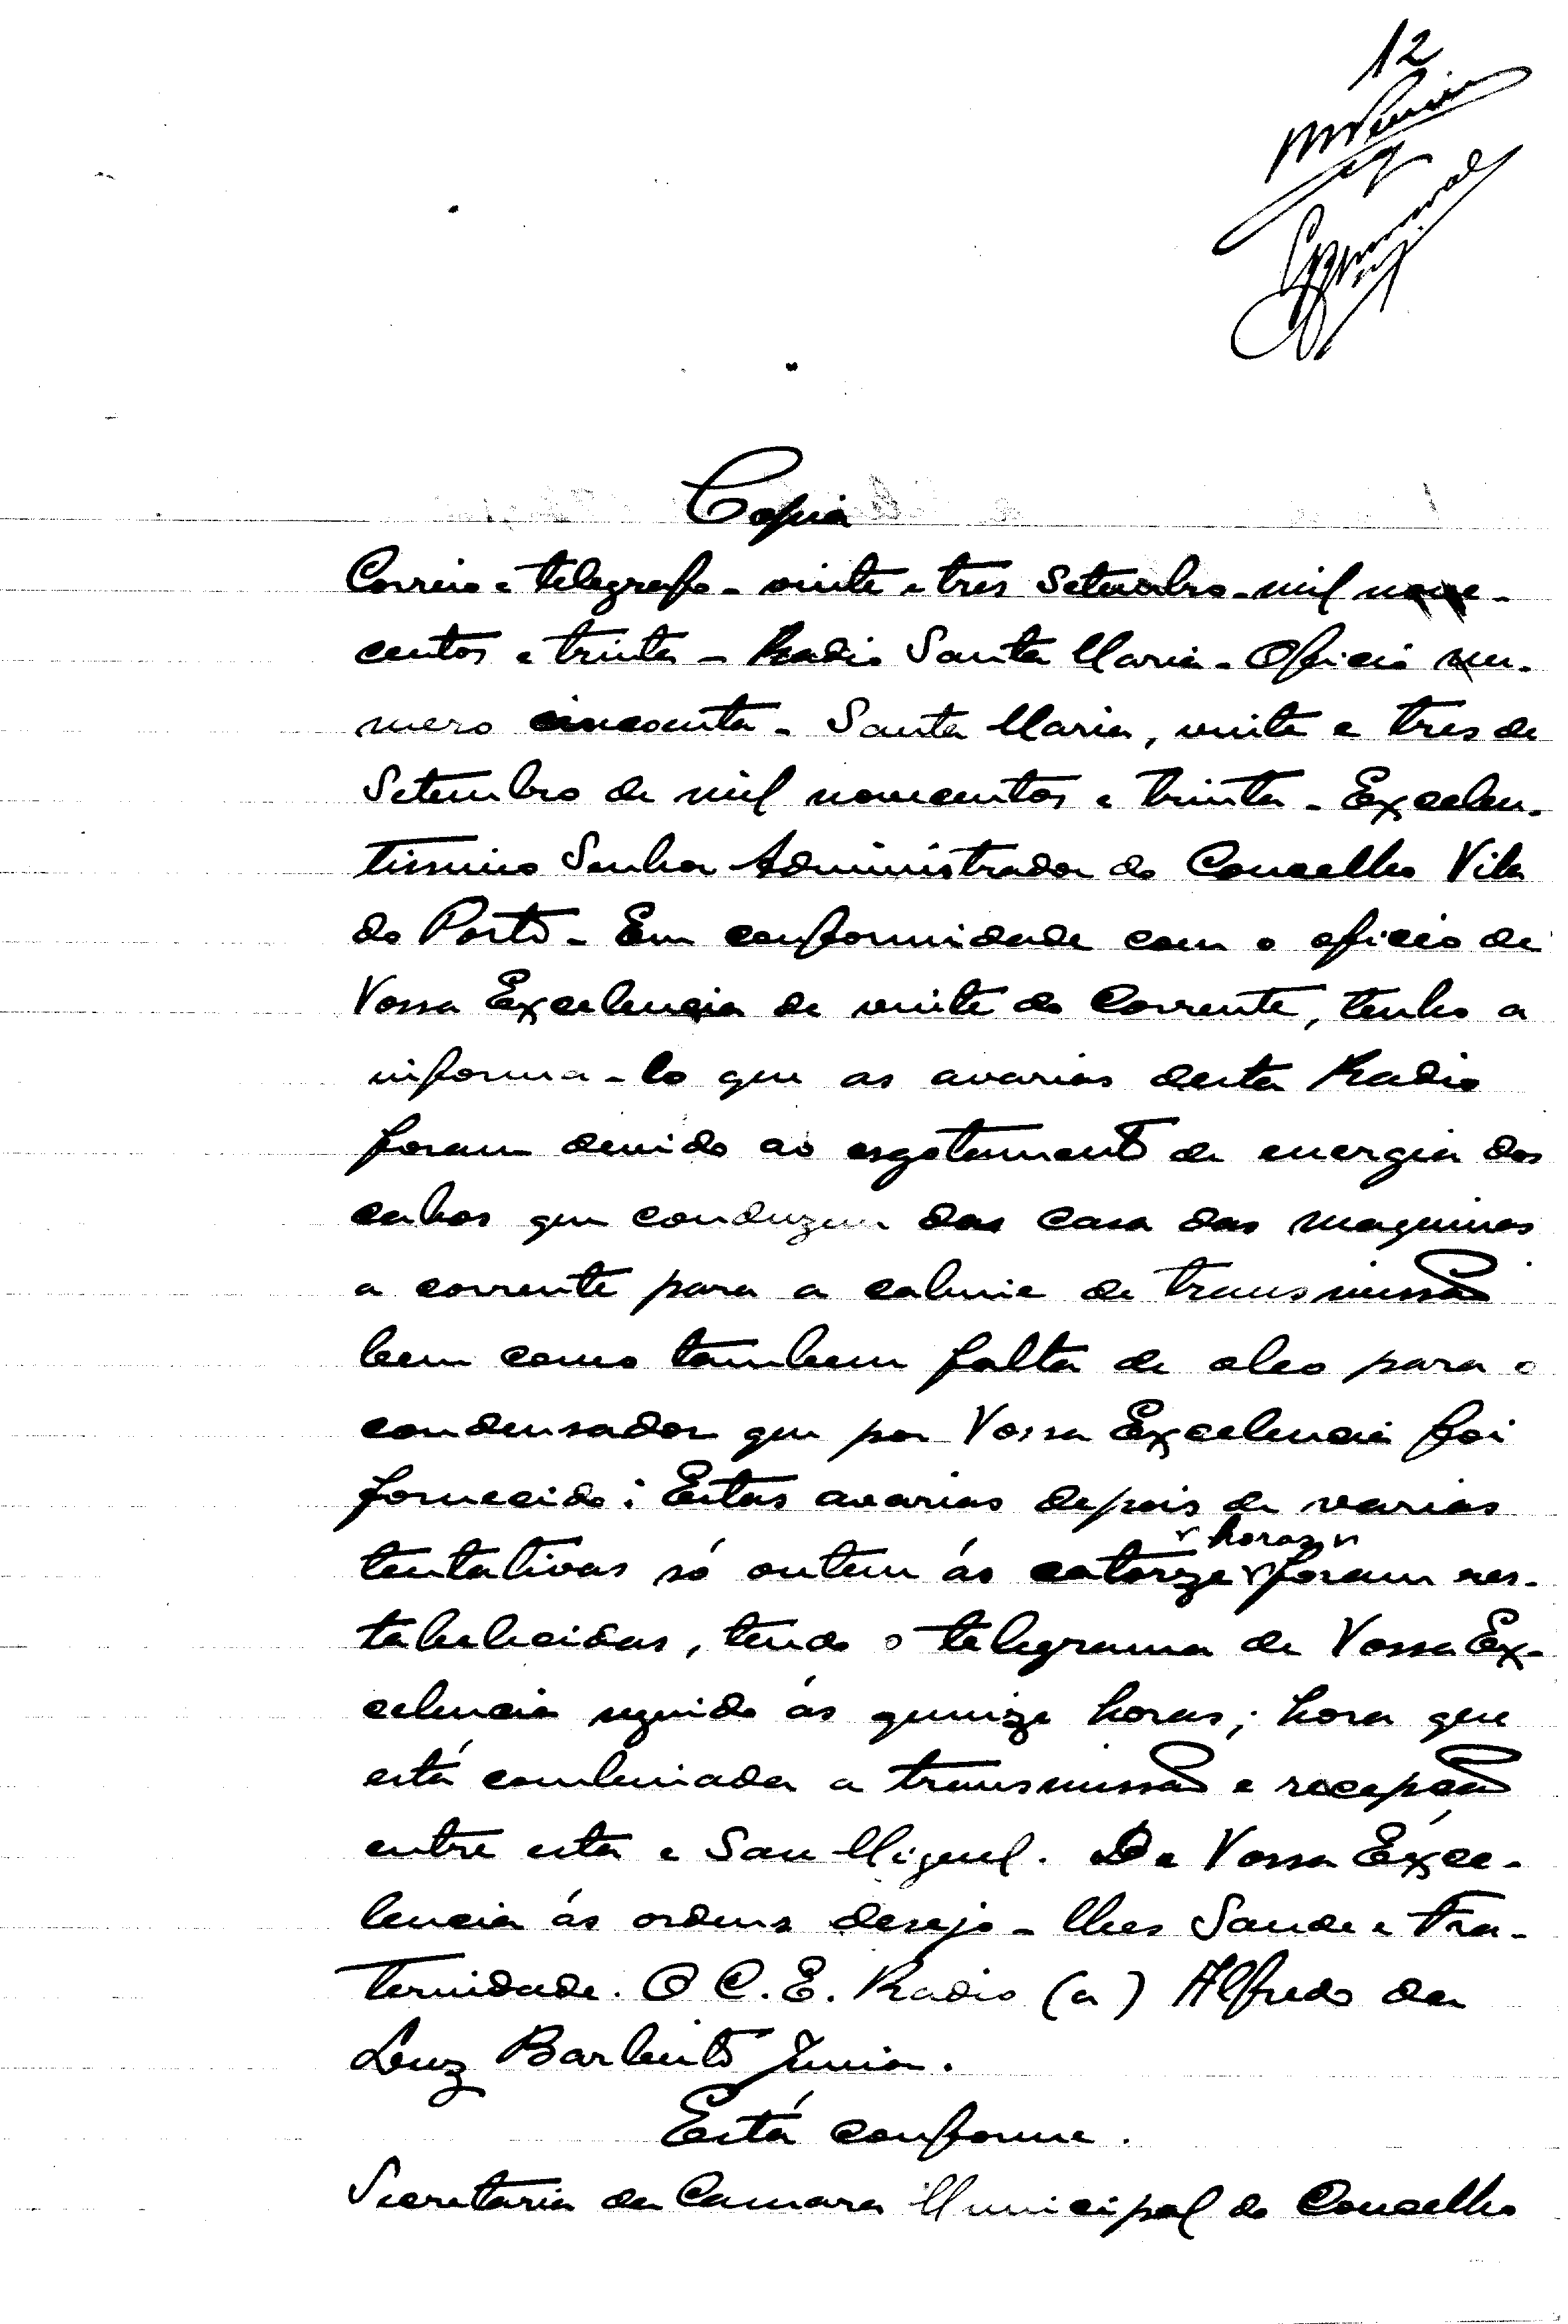 12
Copia
Correio e telegrafo - vinte e tres Setembro - mil nove-
centos e trinta - Radio Santa Maria - Oficio nu-
mero cincoenta - Santa Maria, vinte e tres de
Setembro de mil novecentos e trinta - Excelen-
tissimo Senhor Administrador do Concelho Vila
do Porto - Em conformidade com o oficio de
Vossa Excelencia de vinte do Corrente, tenho a
informa-lo que as avarias desta Radio
foram devido ao esgotamento de energia dos
cabos que conduzem das casa das maquinas
a corrente para a cabine de transmissão
bem como tambem falta de oleo para o
condensador que por Vossa Excelencia foi
fornecido; Estas avarias depois de varias
tentativas só ontem ás catorze horas foram res-
tabelecidas, tendo o telegrama de Vossa Ex-
celencia seguido ás quinze horas; hora que
está combinada a transmissão e recepção
entre esta e Sam Miguel. De Vossa Exce-
lencia ás ordens desejo-lhes Saude e Fra-
ternidade. O C. E. Radio (a) Alfredo da
Luz Barbeito Junior.
Está conforme.
Secretaria da Camara Municipal do Concelho